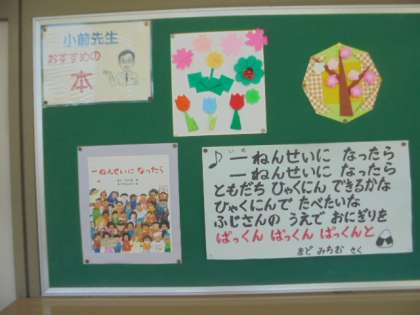 小前先生
おすすめの
本
一ねんせいに なったら
♪ 一ねんせいに なったら
一ねんせいに なったら
ともだち ひゃくにん できるかな
ひゃくにんで たべたいな
ふじさんの うえで おにぎりを
ぱっくん ぱっくん ぱっくんと
まど みちお さく